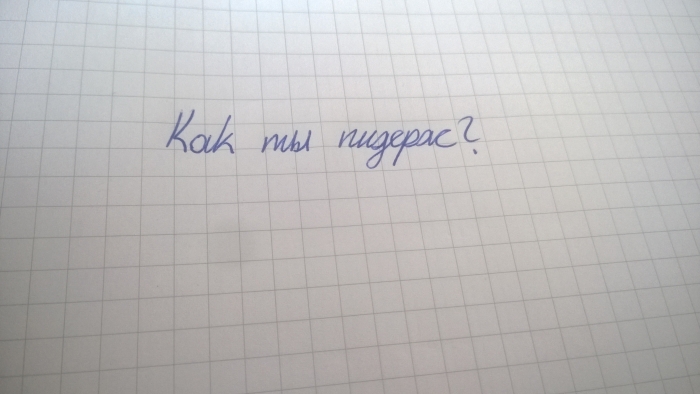 Как ты пидерас?